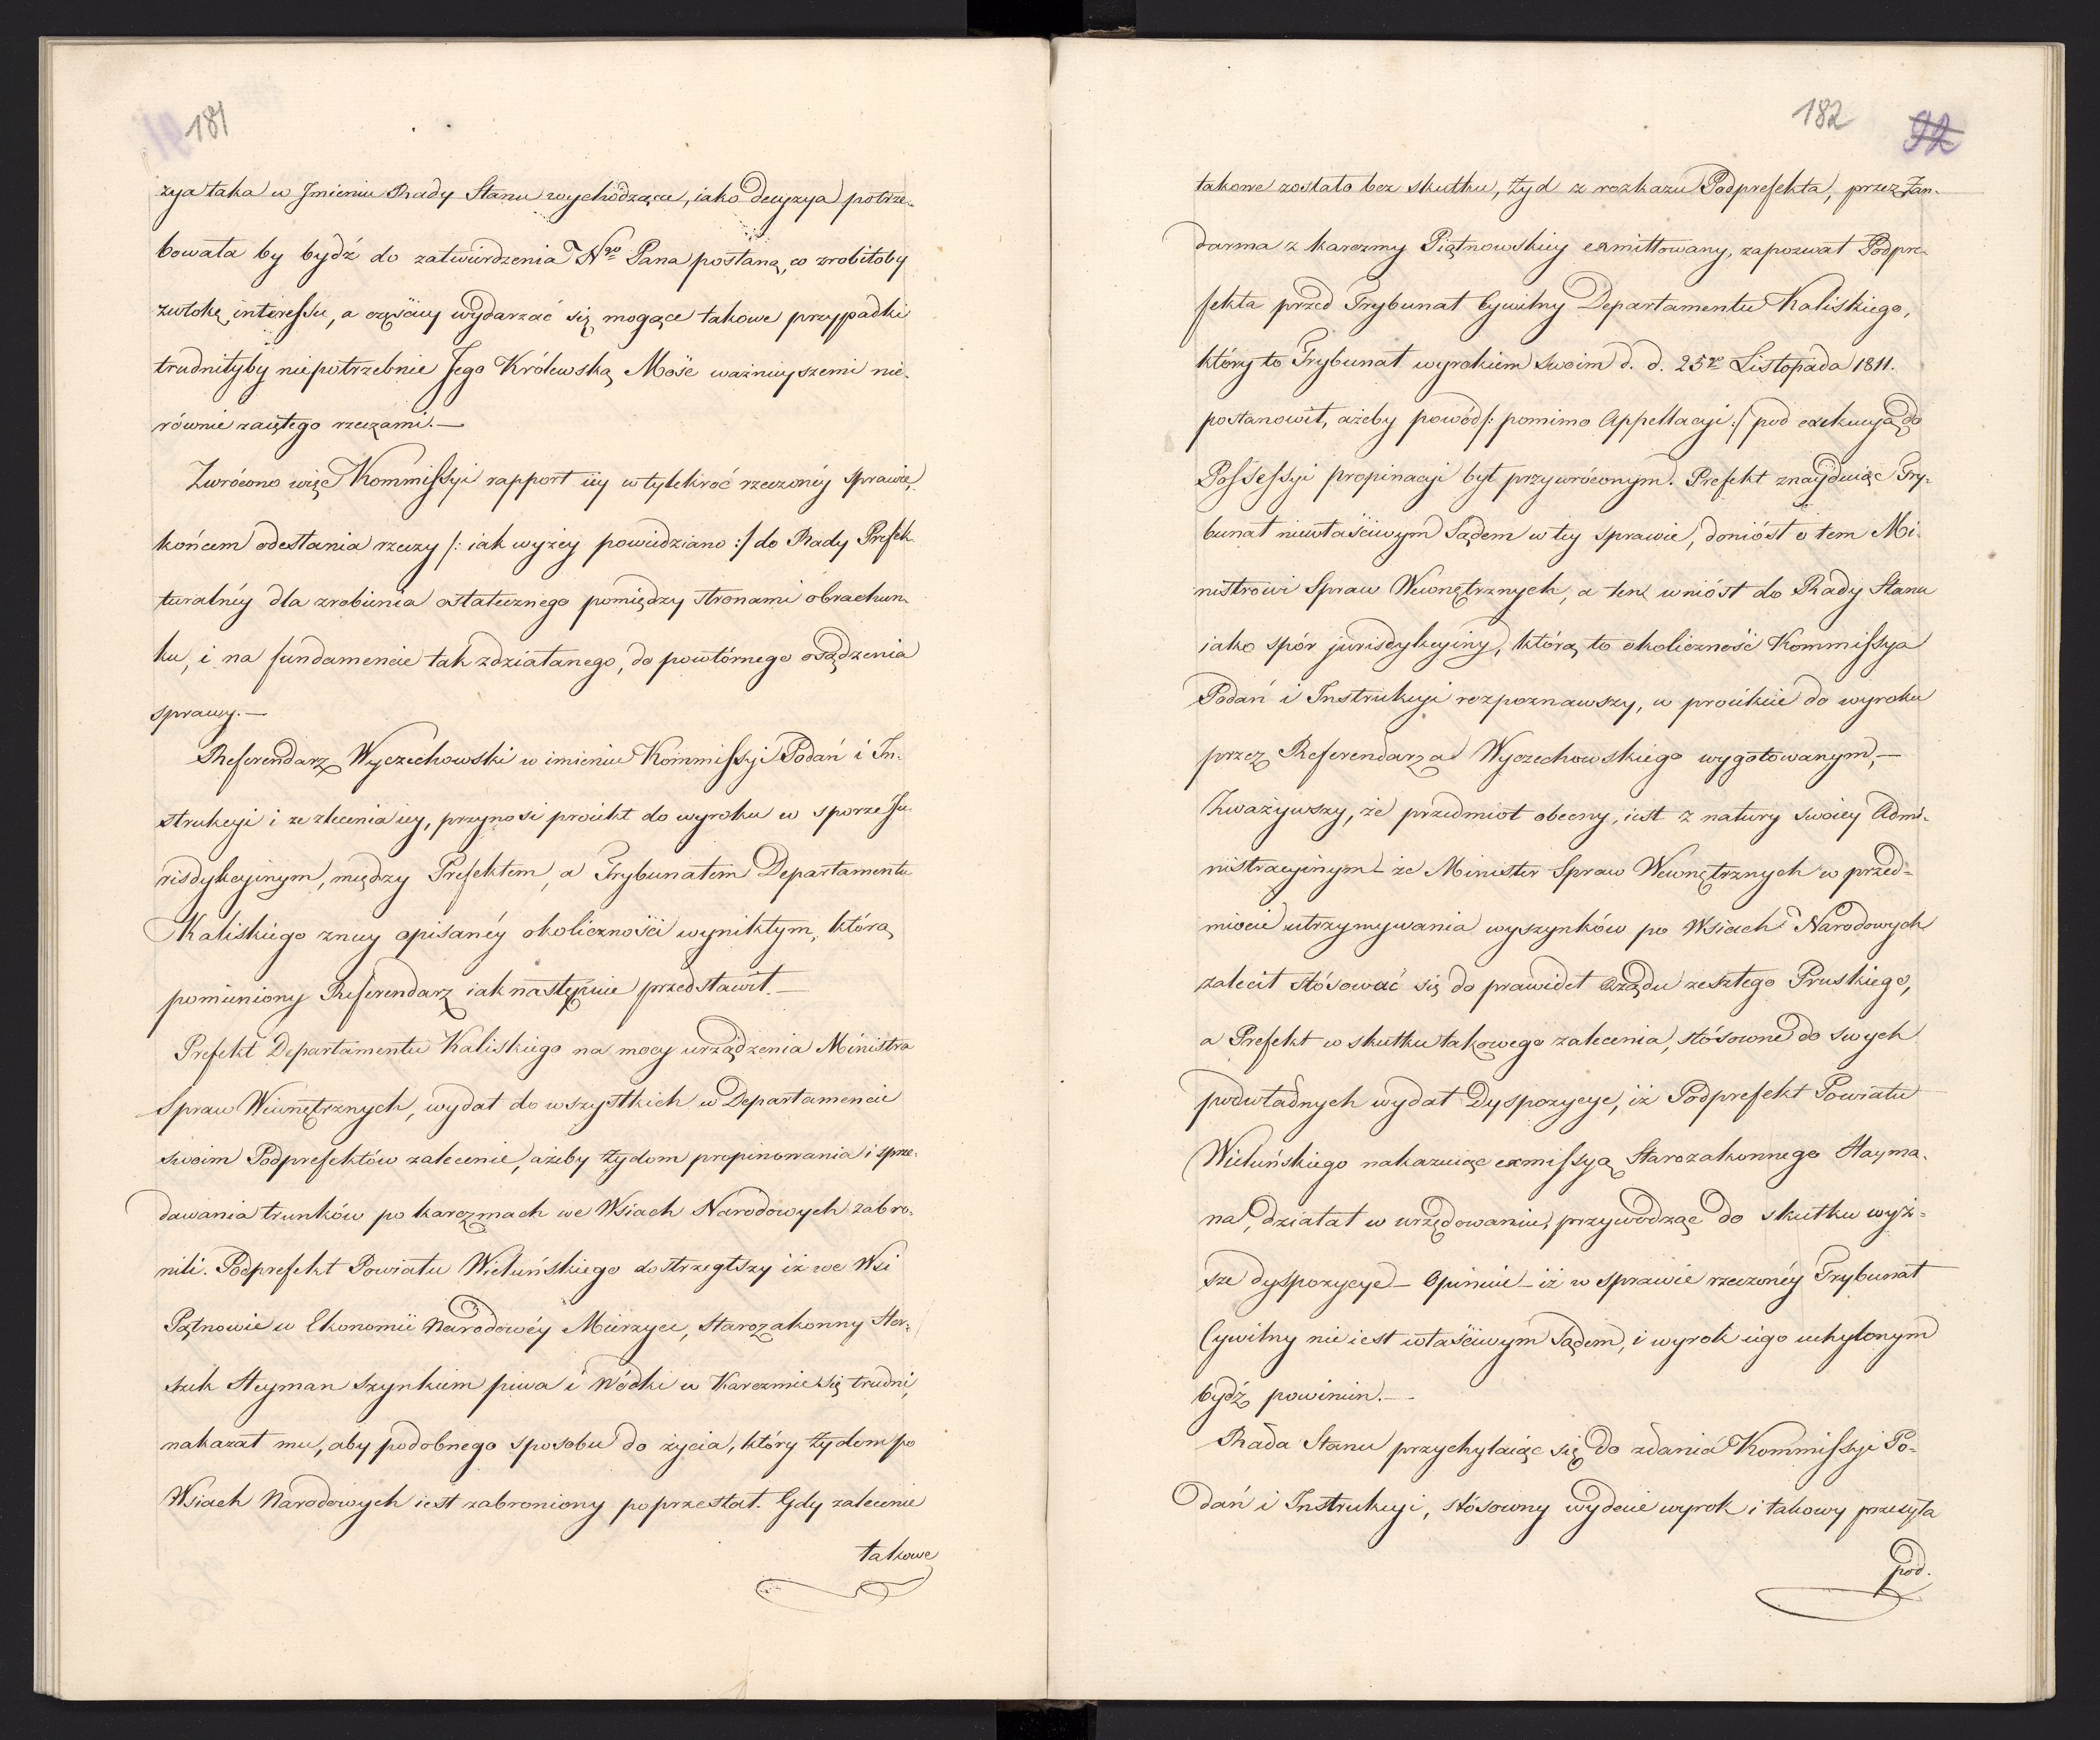 181
zya taka w Jmieniu Rady Stanu wychodząca, iako decyzya potrze-
bowała by bydź do zatwierdzenia Ngo Pana posłaną, co zrobiłoby
zwłokę interessu, a częściey wydarzać się mogące takowe przypadki
trudniłyby niepotrzebnie Jego Królewską Mość ważnieyszemi nie-
równie zaiętego rzeczami.—
Zwrócono więc Kommissyi rapport iey w tylekroć rzeczonéy sprawie,
końcem odesłania rzeczy /: iak wyżey powiedziano :/ do Rady Prefek-
turalnéy dla zrobienia ostatecznego pomiędzy stronami obrachun-
ku, i na fundamencie tak zdziałanego, do powtórnego osądzenia
sprawy.—
Referendarz Wyczechowski w imieniu Kommissyi Podań i In-
strukcyi i ze zlecenia iey, przynosi proiekt do wyroku w sporze Ju-
risdykcyinym, między Prefektem, a Trybunałem Departamentu
Kaliskiego z niey opisanéy okoliczności wynikłym, którą
pomieniony Referendarz iak następnie przedstawił.—
Prefekt Departamentu Kaliskiego na mocy urządzenia Ministra
Spraw Wewnętrznych, wydał do wszystkich w Departamencie
swoim Podprefektów zalecenie, ażeby żydom propinowania i sprze-
dawania trunków po karczmach we Wsiach Narodowych zabro-
nili. Podprefekt Powiatu Wieluńskiego dostrzegłszy iż we Wsi
Pątnowie w Ekonomii Narodowéy Mierzyce, starozakonny Her-
szek Heyman szynkiem piwa i wódki w Karczmie się trudni,
nakazał mu, aby podobnego sposobu do życia, który żydom po
Wsiach Narodowych iest zabroniony poprzestał. Gdy zalecenie
takowe
182
92
takowe zostało bez skutku, żyd z rozkazu Podprefekta, przez Żan-
darma z karczmy Piątnowskiey exmittowany, zapozwał Podpre-
fekta przed Trybunał Cywilny Departamentu Kaliskiego,
który to Trybunał wyrokiem swoim d. d. 25go Listopada 1811.
postanowił, ażeby powód /: pomimo Appellacyi :/ pod exekucyą do
Possessyi propinacyi był przywróconym. Prefekt znayduiąc Try-
bunał niewłaściwym Sądem w tey sprawie, doniósł o tem Mi-
nistrowi Spraw Wewnętrznych, a ten wniósł do Rady Stanu
iako spór jurisdykcyiny, którą to okoliczność Kommissya
Podań i Instrukcyi rozpoznawszy, w proiekcie do wyroku
przez Referendarza Wyczechowskiego wygotowanym,—
Zważywszy, że przedmiot obecny, iest z natury swoiey Admi-
nistracyinym – że Minister Spraw Wewnętrznych w przed-
miocie utrzymywania wyszynków po Wsiach Narodowych
zalecił stósować się do prawideł Rządu zeszłego Pruskiego,
a Prefekt w skutku takowego zalecenia, stósowne do swych
podwładnych wydał Dyspozycye, iż Podprefekt Powiatu
Wieluńskiego nakazuiąc exmissyą Starozakonnego Hayma-
na, działał w urzędowaniu, przywodząc do skutku wyż-
sze dyspozycye – Opiniuie – iż w sprawie rzeczonéy Trybunał
Cywilny nie iest właściwym Sądem, i wyrok iego uchylonym
bydź powinien.—
Rada Stanu przychylaiąc się do zdania Kommissyi Po-
dań i Instrukcyi, stósowny wydaie wyrok i takowy przesyła
pod.